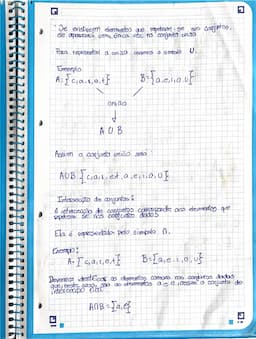 · Se existirem elementos que repetem-se nos conjuntos,
ele aparecerá uma única vez no conjunto união
Para representar a união usamos o símbolo U.
Exemplo:
A={c,a,s,e,t} B={a,e,i,o,u}
união
A U B
Assim o conjunto união será
AUB={c,a,s,e,t,a,e,i,o,u}
Intersecção de conjuntos:
A intersecção de conjuntos corresponde aos elementos que
repetem-se nos conjuntos dados
Ela é representada pelo símbolo ∩.
Exemplo:
A={c,a,s,e,t} B={a,e,i,o,u}
Devemos identificar os elementos comuns nos conjuntos dados
que, neste caso, são os elementos a e e, assim o conjunto de
intersecção fica:
A∩B={a,e}